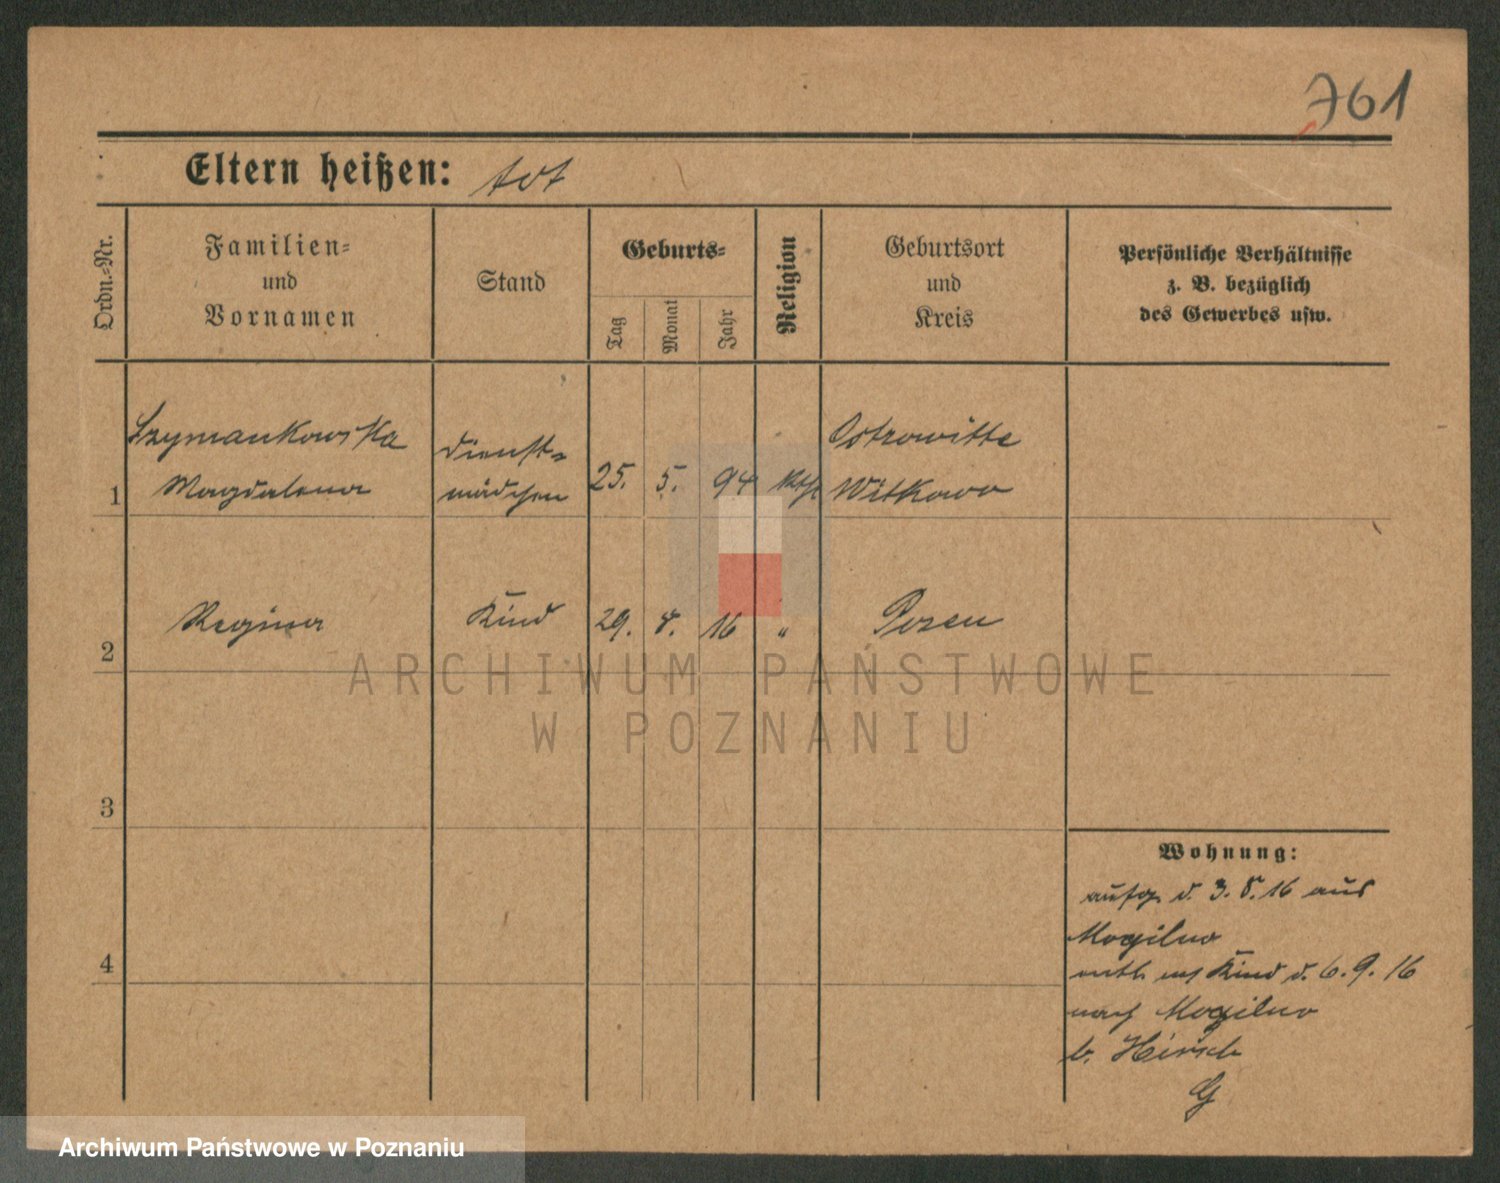 761
Eltern heißen: tot
Ordn.=Nr.
Familien=
und
Vornamen
Stand
Geburts=
Tag
Monat
Jahr
Religion
Geburtsort
und
Kreis
Persönliche Verhältnisse
z. B. bezüglich
des Gewerbes usw.
1
Szymankowska
Magdalena
Dienst=
mädchen
25. 5. 94 kth
Ostrowitte
Witkowo
2
Regina
Kind
29. 4. 16 "
Posen
ARCHIWUM PAŃSTWOWE
W POZNANIU
3
4
Wohnung:
aufg. d. 3. 5. 16 aus
Mogilno
Kind d. 6. 9. 16
nach Mogilno
b. Hirsch
G
Archiwum Państwowe w Poznaniu